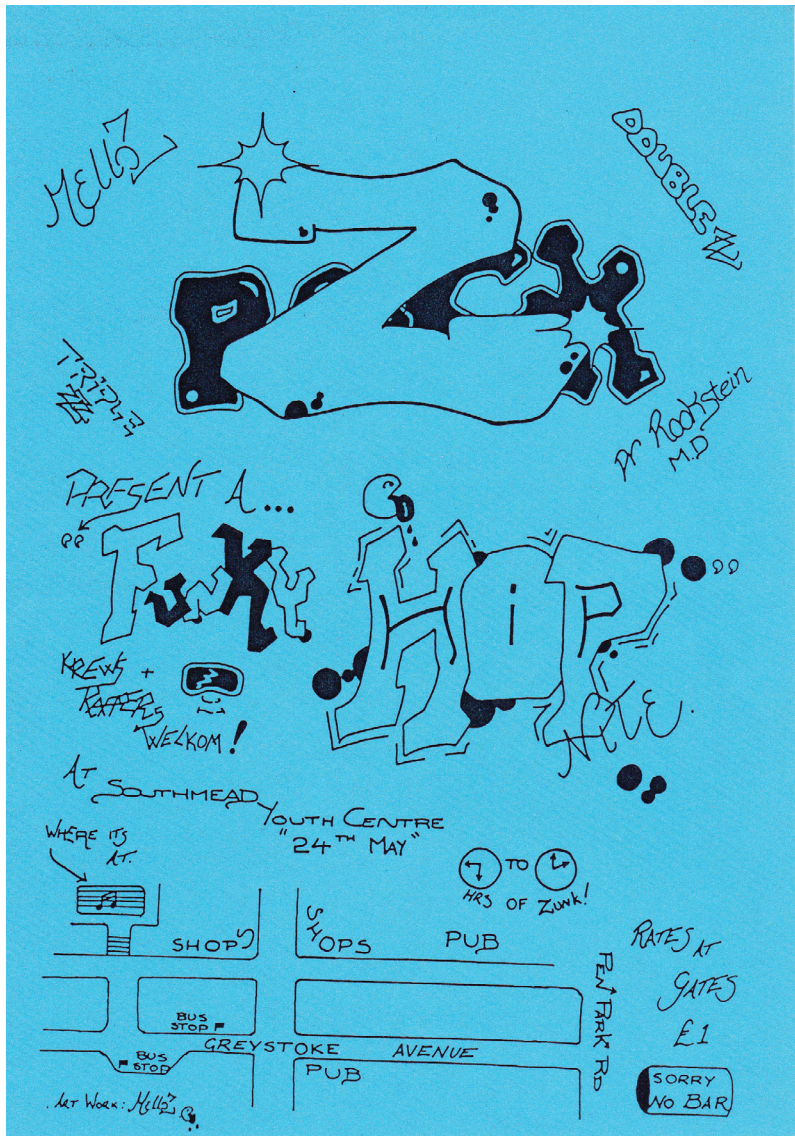 Mellz
DOUBLE ZZ
Z
POCX
TRIPLE ZZZ
Dr Rockstein
M.D
PRESENT A ...
"FUNKY HiP HOP"
NITE.
KREWS +
RAPPERS
WELKOM!
AT SOUTHMEAD YOUTH CENTRE
"24TH MAY"
WHERE ITS
AT.
TO
HRS OF ZUNK!
SHOPS
SHOPS
PUB
PEN PARK RD
RATES AT
GATES
£1
BUS
STOP
BUS
STOP
GREYSTOKE AVENUE
PUB
SORRY
NO BAR
ART WORK: Mellz